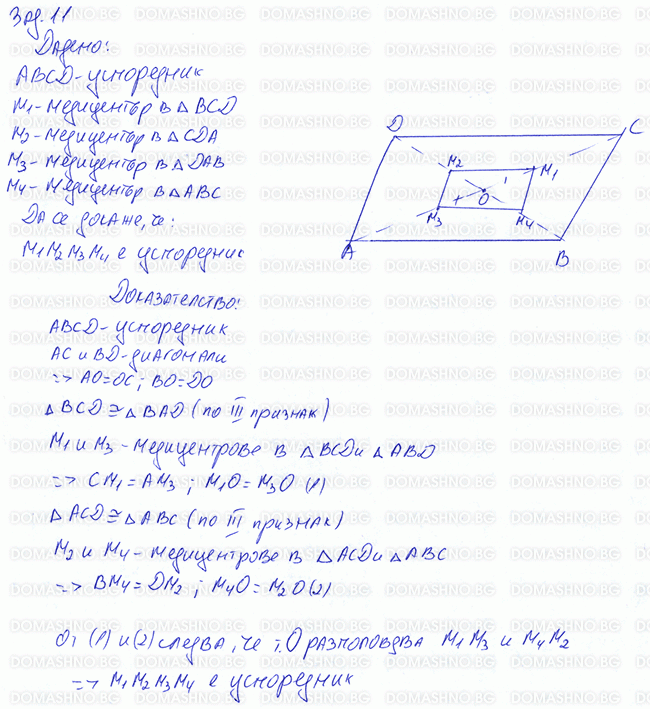 Зад. 11
Дадено:
ABCD - успоредник
M1 - медицентър в △ BCD
M2 - медицентър в △ CDA
M3 - медицентър в △ DAB
M4 - медицентър в △ ABC
Да се докаже, че:
M1M2M3M4 е успоредник
D
C
M2
M1
O
M3
M4
A
B
Доказателство:
ABCD - успоредник
AC и BD - диагонали
=> AO=OC; BO=DO
△ BCD ≅ △ BAD (по III признак)
M1 и M3 - медицентрове в △ BCD и △ ABD
=> CM1 = AM3 ; M1O = M3O (1)
△ ACD ≅ △ ABC (по III признак)
M2 и M4 - медицентрове в △ ACD и △ ABC
=> BM4 = DM2 ; M4O = M2O (2)
От (1) и (2) следва, че т. O разполовява M1M3 и M4M2
=> M1M2M3M4 е успоредник
DOMASHNO.BG